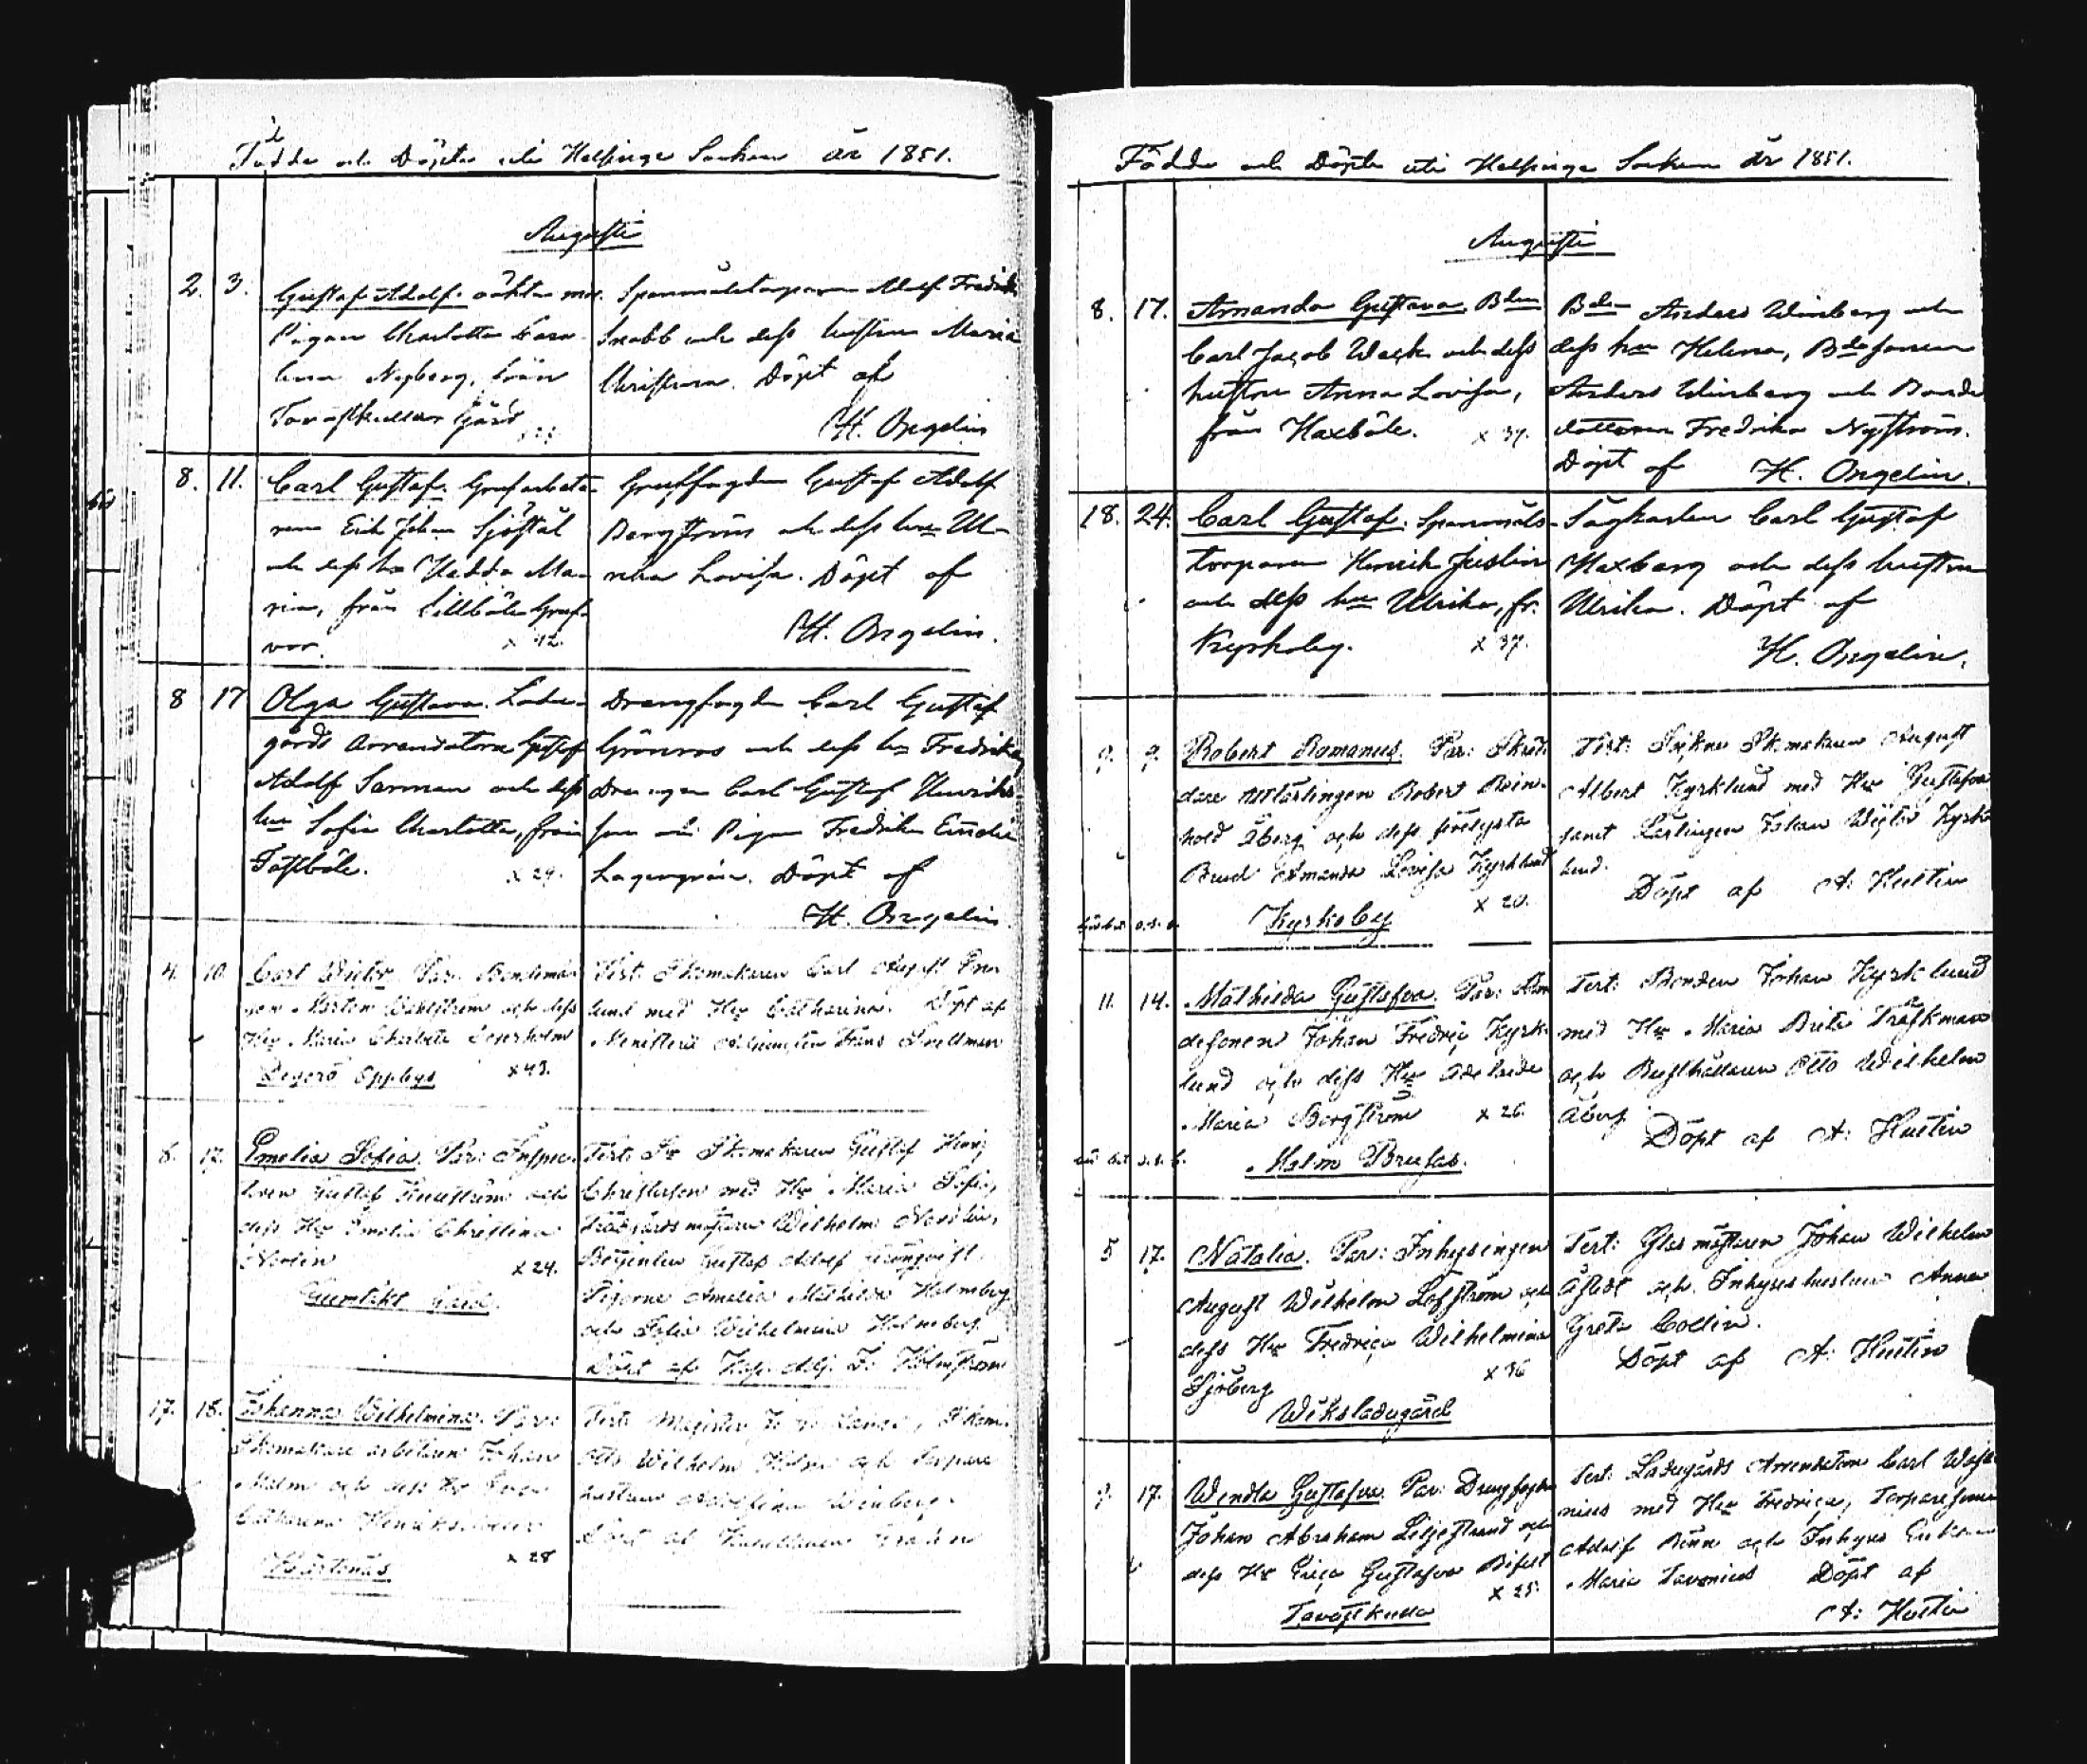 Födde och Döpte uti Helsinge Socken år 1851.
Augusti
2. 3. Gustaf Adolf. oäkta mor.
Pigan Charlotta Caro-
lina Nyberg, från
Tavastkulla Gård
Spanmålstorparen Adolf Fredrik
Snabb och dess hustru Maria
Christina. Döpt af
H. Ongelin
8. 11. Carl Gustaf. Grufarbeta-
ren Erik Johan Sjöstål
och dess hu Hedda Ma-
ria, från Sillböle Gruf-
vor. x 42.
Gruffogden Gustaf Adolf
Bergström och dess hu Ul-
rika Lovisa. Döpt af
H. Ongelin.
8 17 Olga Gustava. Ladu-
gårds Arrendatorn Gustaf
Adolf Sarman och dess
hu Sofia Charlotta, från
Fastböle. x 29.
Drängfogden Carl Gustaf
Grönroos och dess hu Fredrika,
Drängen Carl Gustaf Henriks-
son och Pigan Fredrika
Lagergrén. Döpt af
H. Ongelin
4. 10. Carl Victor. Par: Bondemå-
gen Mårten Wahlström och dess
Hu Maria Charlotta Segerholm
Degerö Uppbys x 43.
Test: Skomakaren Carl August
lund med Hu Catharina. Döpt af
Ministerii Adjuncten Frans Snellman
6. 12. Emelia Sofia. Par: Inspec-
toren Gustaf och
dess Hu Emelia Christina
Norlin x 24.
Gumtäkt Gård.
Test: Skomakaren Gustaf
Christersson med Hu Maria Sofia,
Trädgårdsmästaren Wilhelm Nordlin,
Betjenten Gustaf Adolf
Pigorna Amalia Mathilda Holmberg
och Sofia Wilhelmina Holmberg
Döpt af Kap. Adj. Holmström
17. 18. Johanna Wilhelmina. Par:
Skomakare arbetaren Johan
Malm och dess Hu Eva
Catharina Henriksdotter
x 28
Test: Magister
Otto Wilhelm Holm och Torpare
hustrun Adolfina Winberg.
Döpt af
Födde och Döpte uti Helsinge Socken år 1851.
Augusti
8. 17. Amanda Gustava. Bden
Carl Jacob Wack och dess
hustru Anna Lovisa,
från Haxböle. x 39.
Bden Anders Winberg och
dess hu Helena, Bdesonen
Anders Winberg och Bonde
dottern Fredrika Nyström.
Döpt af H. Ongelin.
18. 24. Carl Gustaf. Spanmåls-
torparen Henrik Juslin
och dess hu Ulrika, fr.
Kyrkoby. x 37.
Sågkarlen Carl Gustaf
Haxberg och dess hustru
Ulrika. Döpt af
H. Ongelin.
9. 9. Robert Romanus. Par: Skräd-
dare Mlärlingen Robert Rein-
hold Åberg och dess förelysta
Brud Amanda Lovisa Kyrklund
Kyrkoby x 20.
Test: Sockne Skomakaren August
Albert Kyrklund med Hu Gustafva
samt Lärlingen Johan Victor Kyrk-
lund.
Döpt af A: Hustin
11. 14. Mathilda Gustafva. Par: Bon-
desonen Johan Fredric Kyrk-
lund och dess Hu Adelaide
Maria Bergström x 26.
Malm Brufas.
Test: Bonden Johan Kyrklund
med Hu Maria Brita Träskman
och Gusthållaren Otto Wilhelm
Åberg
Döpt af A: Hustin
5 17. Natalia. Par: Inhysingen
August Wilhelm Löfström och
dess Hu Fredrica Wilhelmina
Sjöberg x 36
Wiksladugård
Test: Glasmästaren Johan Wilhelm
Åstedt och Inhyseshustrun Anna
Greta Collin.
Döpt af A: Hustin
9. 17. Wendla Gustafva. Par: Drengfogden
Johan Abraham Liljestrand och
dess Hu Erica Gustafva Bifelt
x 25.
Tavastkulla
Test: Ladugårds Arrendatorn Carl
nius med Hu Fredrica, Torparesonen
Adolf Rönn och Inhyses Enkan
Maria Tavonius Döpt af
A: Hustin